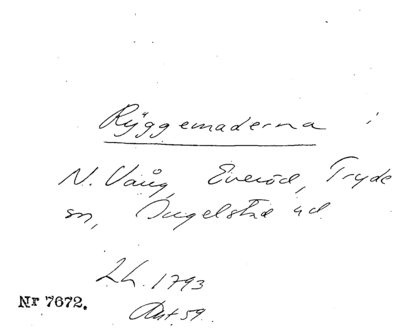 Ryggemaderna i
N. Vång, Everöd, Tryde
sn, Ingelstad hd
LH. 1793
Akt 59.
Nr 7672.